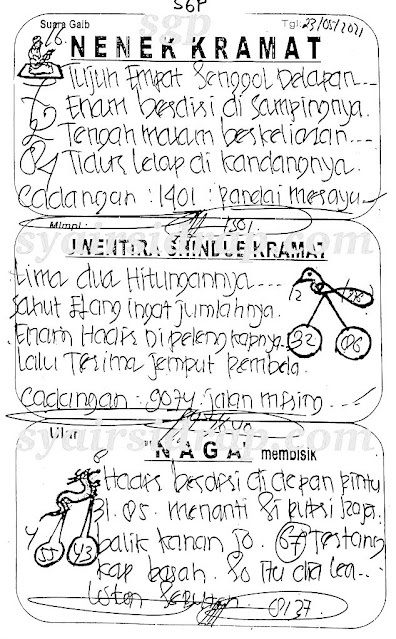 SGP
Suara Gaib
Tgl: 23/05/2021
16
NENEK KRAMAT
Tujuh Empat Senggol Delapan...
Enam berdiri di Sampingnya.
Tengah malam berkeliaran...
Tidur Lelap di kandangnya.
Cadangan : 1401 : pandai merayu
1501
Mimpi :
SHINDUE KRAMAT
Lima dua Hitungannya ....
Sahut Elang ingat jumlahnya.
12
Enam Harus Dipelengkapnya.
32 06
Lalu Terima Jemput Pembela.
Cadangan : 9074 : jalan miring
Ular
"NAGA" membisik
6
Harus berdiri di depan pintu
31. 05. menanti 81 putri Raja.
4
55 43
balik kanan 50. 67 Tertang
kap basah. 80 Itu dia Lea...